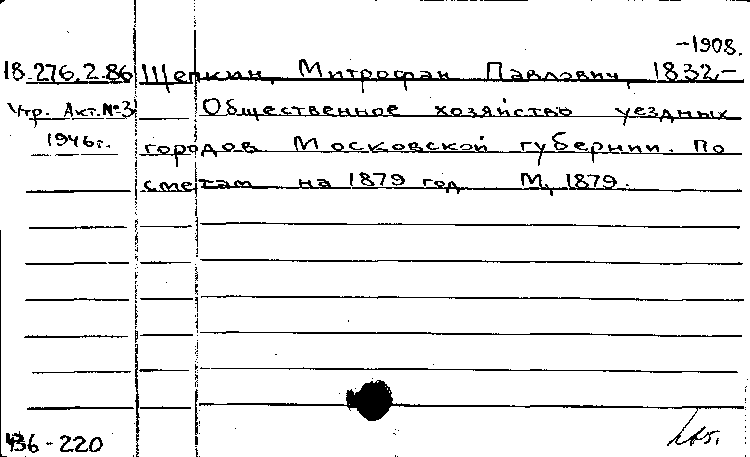 -1908.
18.276.2.86 Щепкин, Митрофан Павлович, 1832,-
Утр. Акт.№3 Общественное хозяйство уездных
1946г. городов Московской губернии. По
сметам на 1879 год М, 1879.
436-220